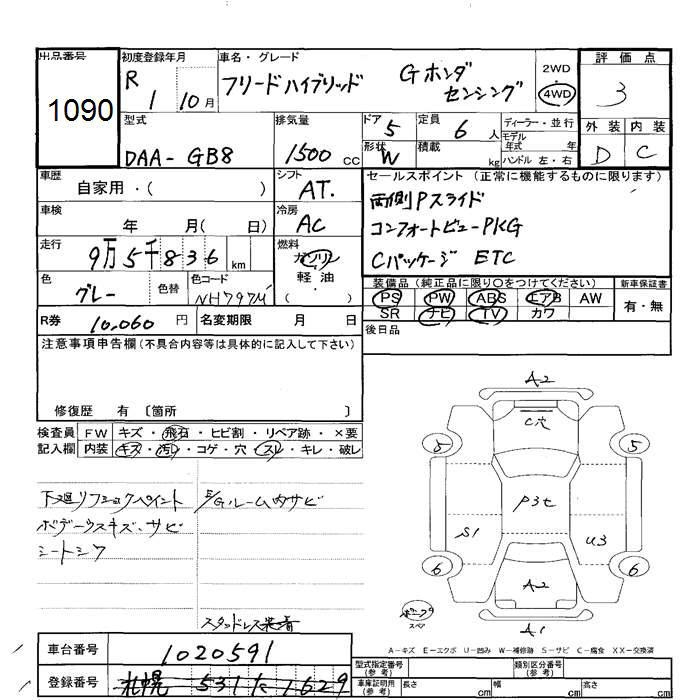 出品番号
1090
初度登録年月
R 1 10月
車名・グレード
フリードハイブリッド Gホンダセンシング
2WD
・
4WD
評価点
3
外装 内装
D C
型式
DAA-GB8
排気量
1500 cc
ドア 5
定員 6 人
形状 W
積載 kg
ディーラー・並行
モデル
年式 年
ハンドル 左・右
車歴
自家用・( )
シフト
AT.
セールスポイント (正常に機能するものに限ります)
両側Pスライド
コンフォートビューPKG
Cパッケージ ETC
車検
年 月( 日)
冷房
AC
走行
9万5千836 km
燃料
ガソリン
軽・油
・( )
色
グレー
色替
色コード
NH797M
装備品 (純正品に限り○をつけてください)
PS PW ABS エアB AW
SR ナビ TV カワ
新車保証書
有・無
R券 10,060 円
名変期限 月 日
後日品
注意事項申告欄 (不具合内容等は具体的に記入して下さい)
修復歴 有 〔箇所 〕
検査員 FW キズ・飛石・ヒビ割・リペア跡・×要
記入欄 内装 キズ・汚レ・コゲ・穴・スレ・キレ・破レ
下廻リフェックペイント
ボデーウスキズ、サビ
シートシワ
E/Gルーム内サビ
スタッドレス装着
A2
C穴
5 5
P3セ
S1 U3
6 6
A2
A1
スペア
A-キズ E-エクボ U-凹み W-補修跡 S-サビ C-腐食 XX-交換済
車台番号 1020591
登録番号 札幌 531 た 1629
型式指定番号
(参考)
類別区分番号
(参考)
車庫証明用
(参考)
長さ cm
幅 cm
高さ cm